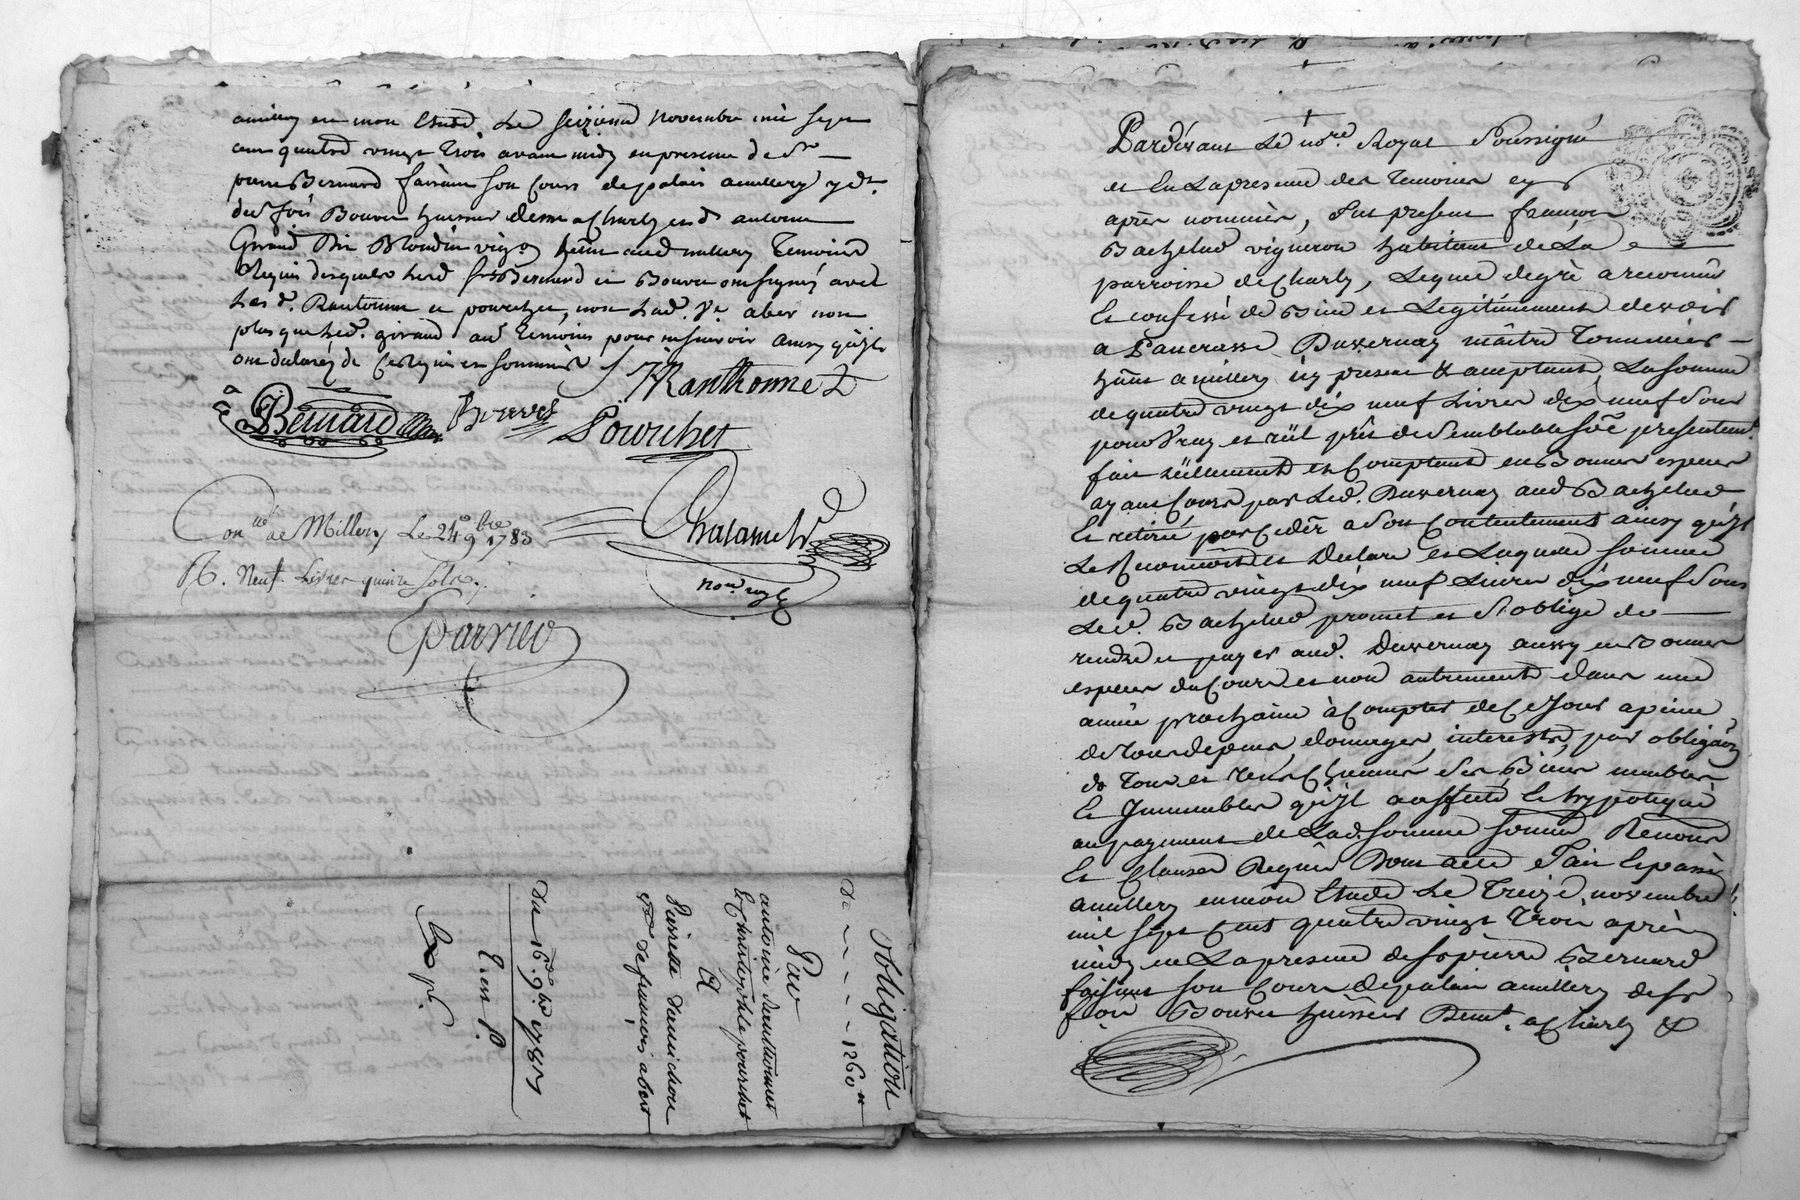 amillery en mon Etude, Le seizieme novembre mil sept
cent quatre vingt trois avant midy en presence de Sr
pierre Bernard faisant son cours de palais amillery, &
de Sr fois Bouvier huissier demt a Charly et d antoine
Giraud vigon hant aud millery Temoins
Requis desquels led Srs Bernard et Bouvier ont signés avec
Les d. Ranthonne et pourchet, non Lad. ve abert non
plus que led. giraud autre Temoins pour ne sçavoir ainsy qu'ils
ont declarez de ce Requis et sommés
JRanthonnet
Bernard Bouvier
Pourchet
Conlé a Millery Le 24e 9bre 1783
R. Neuf Livres quinze sols.
Chalamel
nore roya
Parrieu
Obligation
De - - - - 1260 tt
Par
antoine Ranthonnet
Et Christophle pourchet
A
Pierrette
ve de françois abert
Du 16e 9bre 1783
Exp. P.
Pardevant Le nore Royal Soussigné
et En La presence des Temoins cy
après nommés, fut present françois
Bachelud vigneron habitant de La
parroisse de Charly, Lequel de gré a reconnu
Et confessé de Bien et Legitimement devoir
a Pancrasse Duvernay maître Tonnelier
hant a millery icy present & acceptant, La somme
de quatre vingt dix neuf Livres dix neuf Sous
pour vray et réel prêt de Semblable sôe presentemt.
fait réellement et Comptant en Bonnes especes
ayant Cours par Led. Duvernay aud Bachelud
Et retiré par cedr a Son Contentement ainsy qu'il
Le Reconnoit et Declare et Laquelle somme
de quatre vingt dix neuf Livres dix neuf Sous
Led. Bachelud promet et S'oblige de
rendre et payer aud. Duvernay aussy en Bonnes
especes du Cours et non autrement dans une
année prochaine à Compter de Ce Jour a peine
de tous depens, domages, interests, par obligaôn
de Tous et Ses Biens meubles
Et Immeubles qu'il a affecté et hypotequé
au payement de Ladse somme soumis Renonce
Et Clauses Requis Dont acte Fait Et passé
amillery en mon Etude Le Treize novembre
mil sept Cent quatre vingt Trois après
midy en La presence de Sr pierre Bernard
faisant son Cours de palais amillery de Sr
foi Bouvier huissier Demt. a Charly &